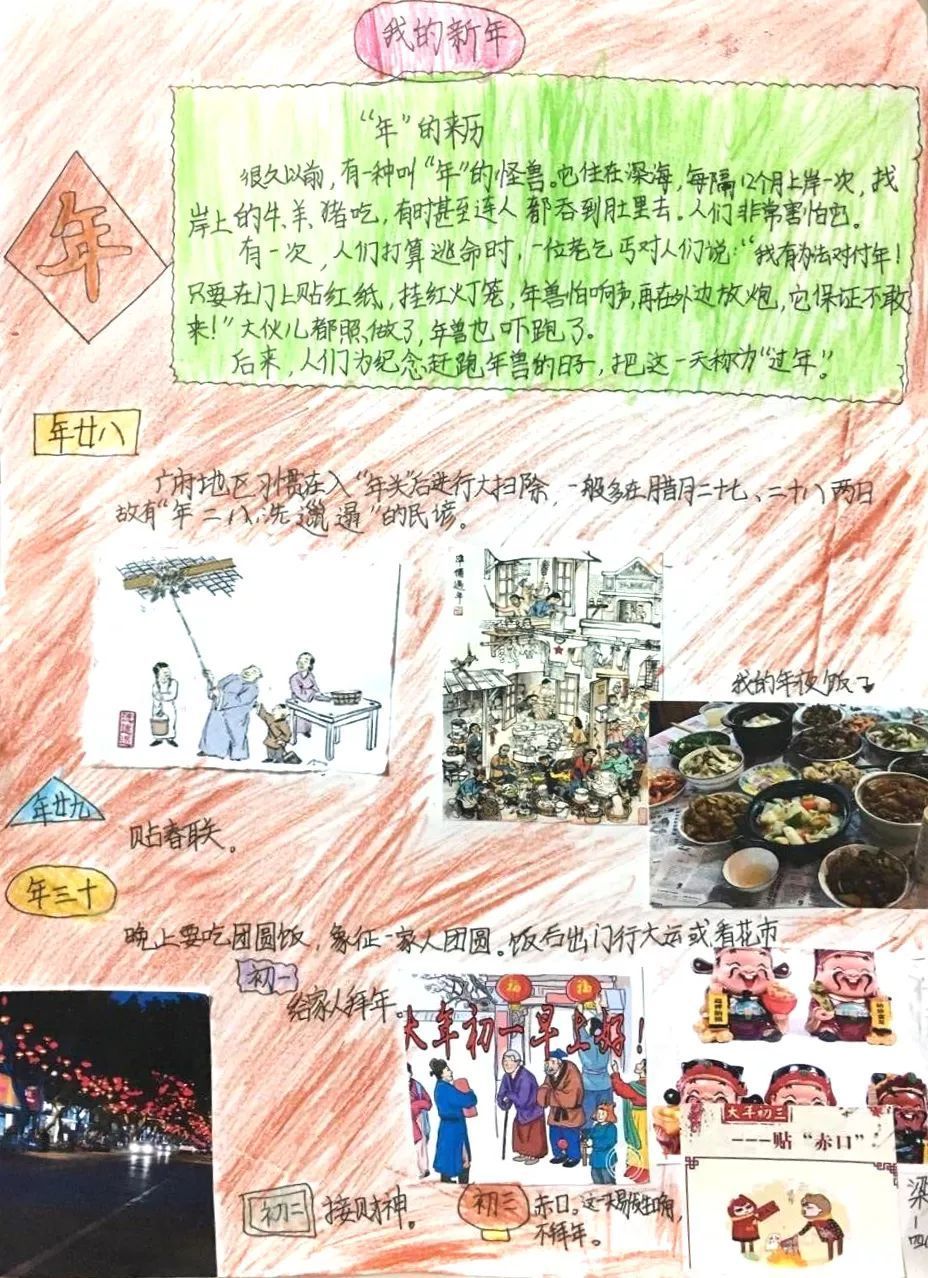 我的新年
“年”的来历
很久以前，有一种叫“年”的怪兽。它住在深海，每隔12个月上岸一次，找
岸上的牛、羊、猪吃，有时甚至连人都吞到肚里去。人们非常害怕它。
有一次，人们打算逃命时，一位老乞丐对人们说：“我有办法对付年！
只要在门上贴红纸，挂红灯笼，年兽怕响声，再在外边放炮，它保证不敢
来！”大伙儿都照做了，年兽也吓跑了。
后来，人们为纪念赶跑年兽的日子，把这一天称为“过年”。
年
年廿八
广府地区习惯在入“年关”后进行大扫除，一般多在腊月二十七、二十八两日，
故有“年二八，洗邋遢”的民谚。
准备过年
我的年夜饭
年廿九
贴春联。
年三十
晚上要吃团圆饭，象征一家人团圆。饭后出门行大运或看花市
初一
给家人拜年。
福
福
大年初一早上好！
大年初三
---贴“赤口”
初二
接财神。
初三
赤口。这天易发生口角，
不拜年。
梁
一
四